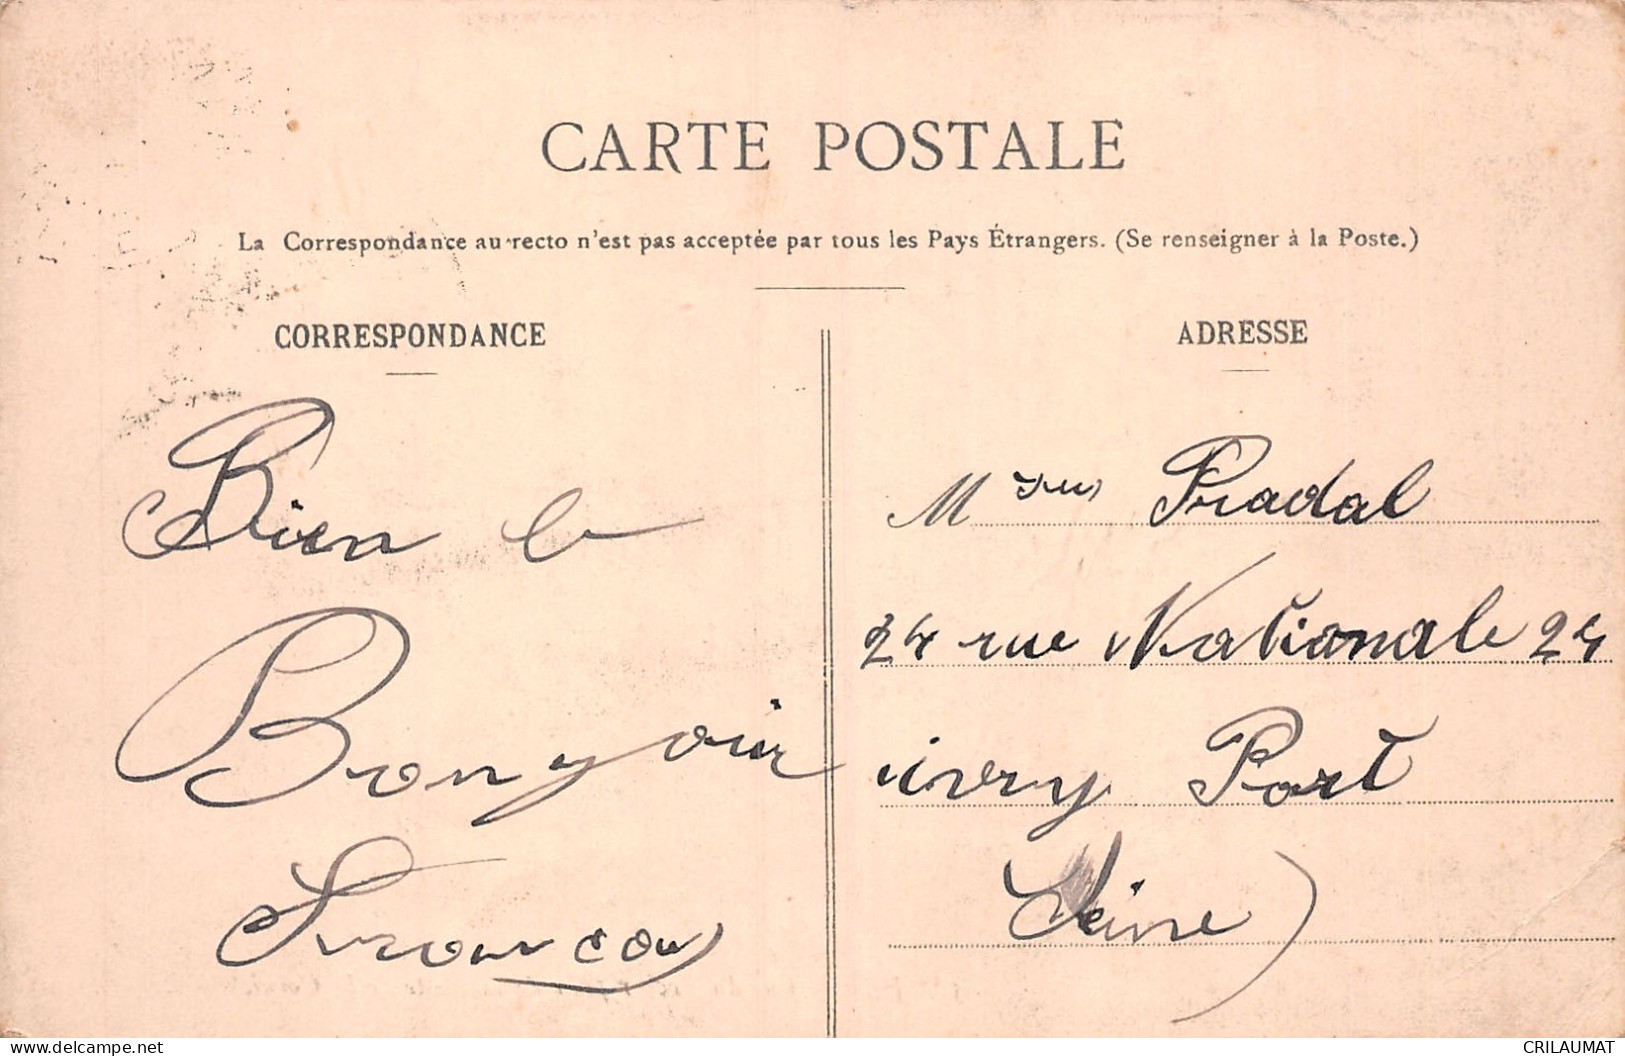 CARTE POSTALE
La Correspondance au recto n'est pas acceptée par tous les Pays Étrangers. (Se renseigner à la Poste.)
CORRESPONDANCE
Bien le
Bonjour
ADRESSE
Pradal
24 rue Nationale 24
ivry Port
Seine)
delcampe.net
CRILAUMAT